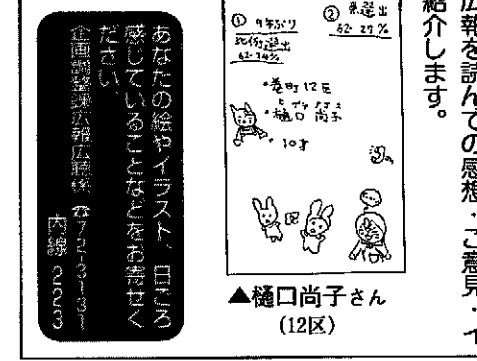 広報を読んでの感想・ご意見・イ
紹介します。
① 9年ぶり
比例選出
62.74%
②
62.27%
・巻町12区
・樋口尚子
・10才
▲樋口尚子さん
(12区)
あなたの絵やイラスト、日ごろ
感じていることなどをお寄せく
ださい。
企画調整課広報広聴係 ☎72-3131
内線 223